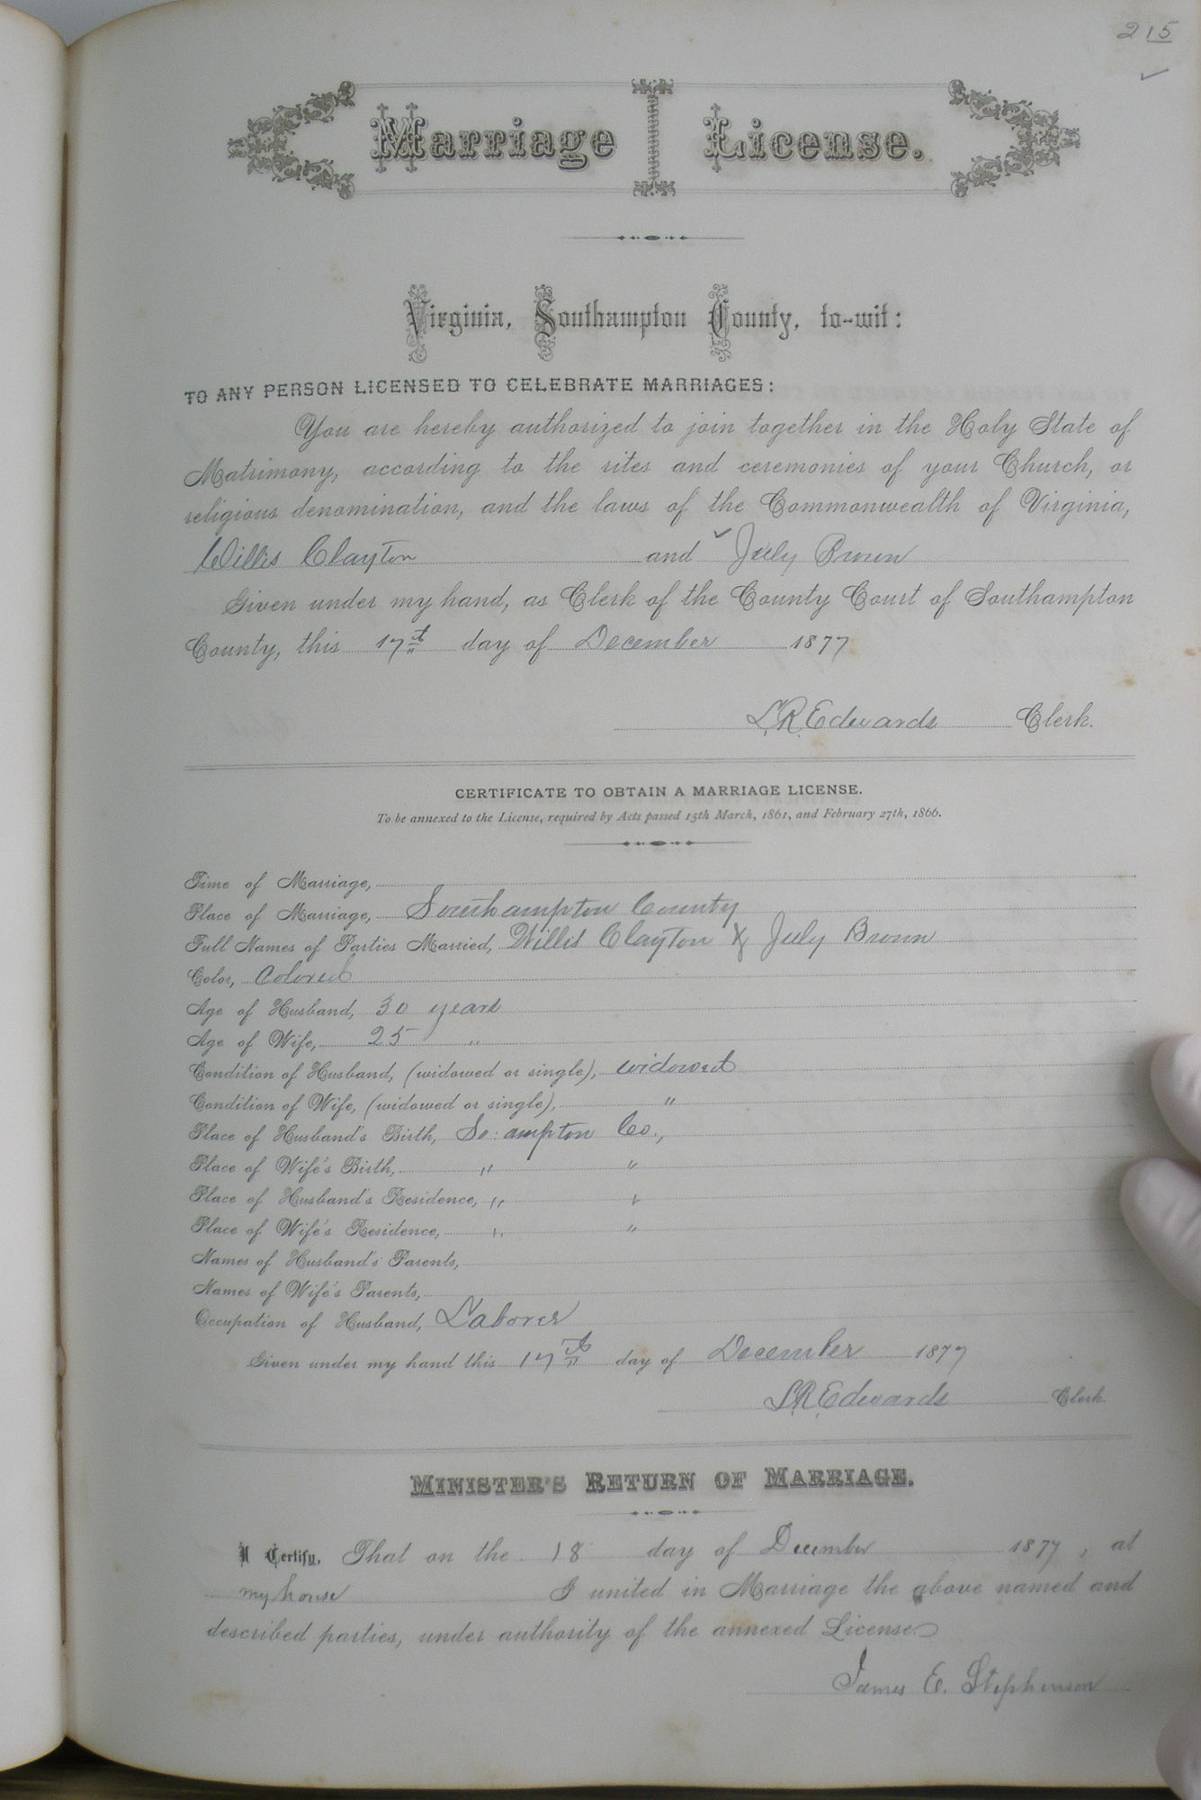 215
Marriage License.
Virginia, Southampton County, to-wit:
TO ANY PERSON LICENSED TO CELEBRATE MARRIAGES:
You are hereby authorized to join together in the Holy State of
Matrimony, according to the rites and ceremonies of your Church, or
religious denomination, and the laws of the Commonwealth of Virginia,
Willis Clayton and July Brown
Given under my hand, as Clerk of the County Court of Southampton
County, this 17th day of December 1877
L.R. Edwards Clerk.
CERTIFICATE TO OBTAIN A MARRIAGE LICENSE.
To be annexed to the License, required by Acts passed 15th March, 1861, and February 27th, 1866.
Time of Marriage,
Place of Marriage, Southampton County
Full Names of Parties Married, Willis Clayton & July Brown
Color, Colored
Age of Husband, 30 years
Age of Wife, 25 "
Condition of Husband, (widowed or single), widowed
Condition of Wife, (widowed or single), "
Place of Husband's Birth, So:ampton Co.,
Place of Wife's Birth, " "
Place of Husband's Residence, " "
Place of Wife's Residence, " "
Names of Husband's Parents,
Names of Wife's Parents,
Occupation of Husband, Laborer
Given under my hand this 17th day of December 1877
L.R. Edwards Clerk
MINISTER'S RETURN OF MARRIAGE.
I Certify, That on the 18 day of December 1877, at
my house I united in Marriage the above named and
described parties, under authority of the annexed License.
James E. Stephenson